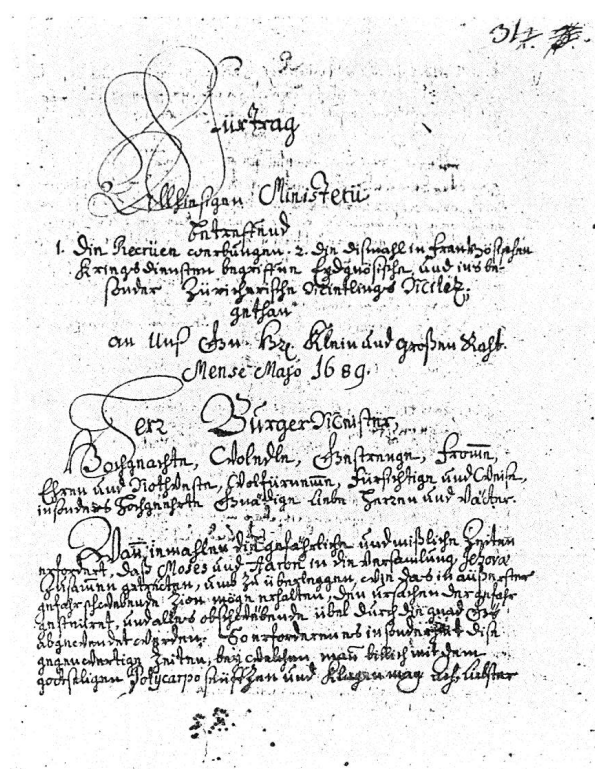 314.
Fürtrag
Allhiesigen Ministerii
betreffend
1. Die Recrüen werbungen. 2. die dismahl in Frantzösischen
Kriegsdiensten begriffne Eydgnösische, und insbe-
sonder Züricherische Mietlings Militz,
gethan
an Unß Gn. Hr. Klein und Großen Raht.
Mense Majo 1689.
Herr Burger Meister,
Hochgeachte, Woledle, Gestrenge, Fromme,
Ehren und Nothveste, Wolfürnemme, Fürsichtige und Weise,
insonders Hochgeehrte Gnädige liebe Herren und Vätter.
Wann iemahlen die gefahrliche und mißliche Zeiten
erfordert, daß Moses und Aaron in die Versamlung Jehova
zusamen getretten, umb zu überleggen, wie das in äusserster
gefahr schwebende Zion möge erhalten, den ursachen der gefahr
gesteüret, und alles obschwebende übel durch die gnad
abgewendet werden: So erforderen es insonderheit dise
gegenwertige Zeiten, bey welchen man billich mit dem
gottseligen Polycarpo seüfftzen und klagen mag ach liebster